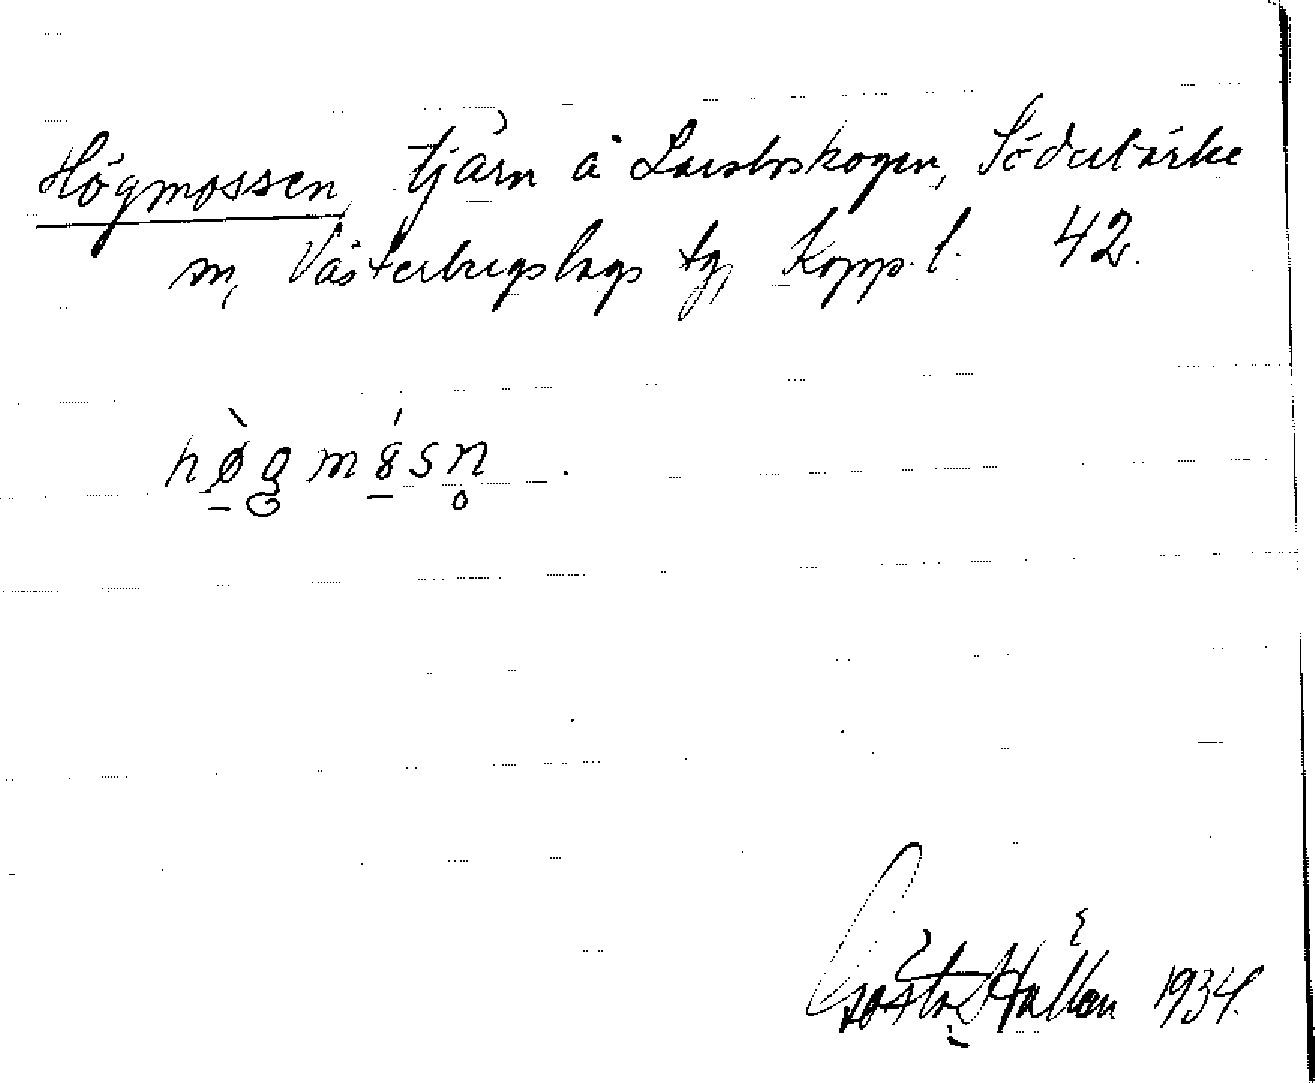 Högmossen, tjärn å Larsboskogen, Söderbärke
sn, Västerbergslags tg, Kopp. l. 42.
hø̀gmósn̥ .
Gösta Hallén 1934.